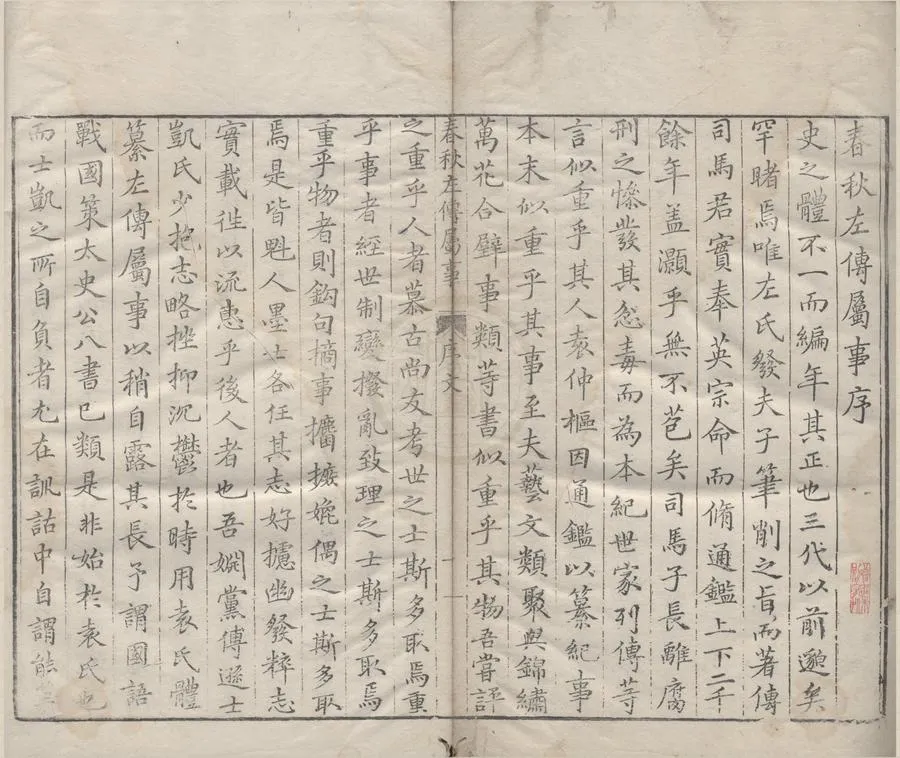 春秋左傳屬事序
史之體不一而編年其正也三代以前邈矣
罕睹焉唯左氏發夫子筆削之旨而著傳
司馬若實奉英宗命而脩通鑑上下二千
餘年盖灝乎無不苞矣司馬子長離腐
刑之慘發其忿毒而為本紀世家列傳等
言似重乎其人袁仲樞因通鑑以纂紀事
本末似重乎其事至夫藝文類聚與錦繡
萬花合璧事類等書似重乎其物吾嘗評
春秋左傳屬事 序文 一
之重乎人者慕古尚友考世之士斯多取焉重
乎事者經世制變撥亂致理之士斯多取焉
重乎物者則鈎句摘事攟摭媲偶之士斯多取
焉是皆魁人墨士各任其志好攄幽發粹志
實載徃以流惠乎後人者也吾嫻黨傳遜士
凱氏少抱志略挫抑沉鬱於時用袁氏體
纂左傳屬事以稍自露其長予謂國語
戰國策太史公八書已類是非始於袁氏也
而士凱之所自負者尤在訓詁中自謂能